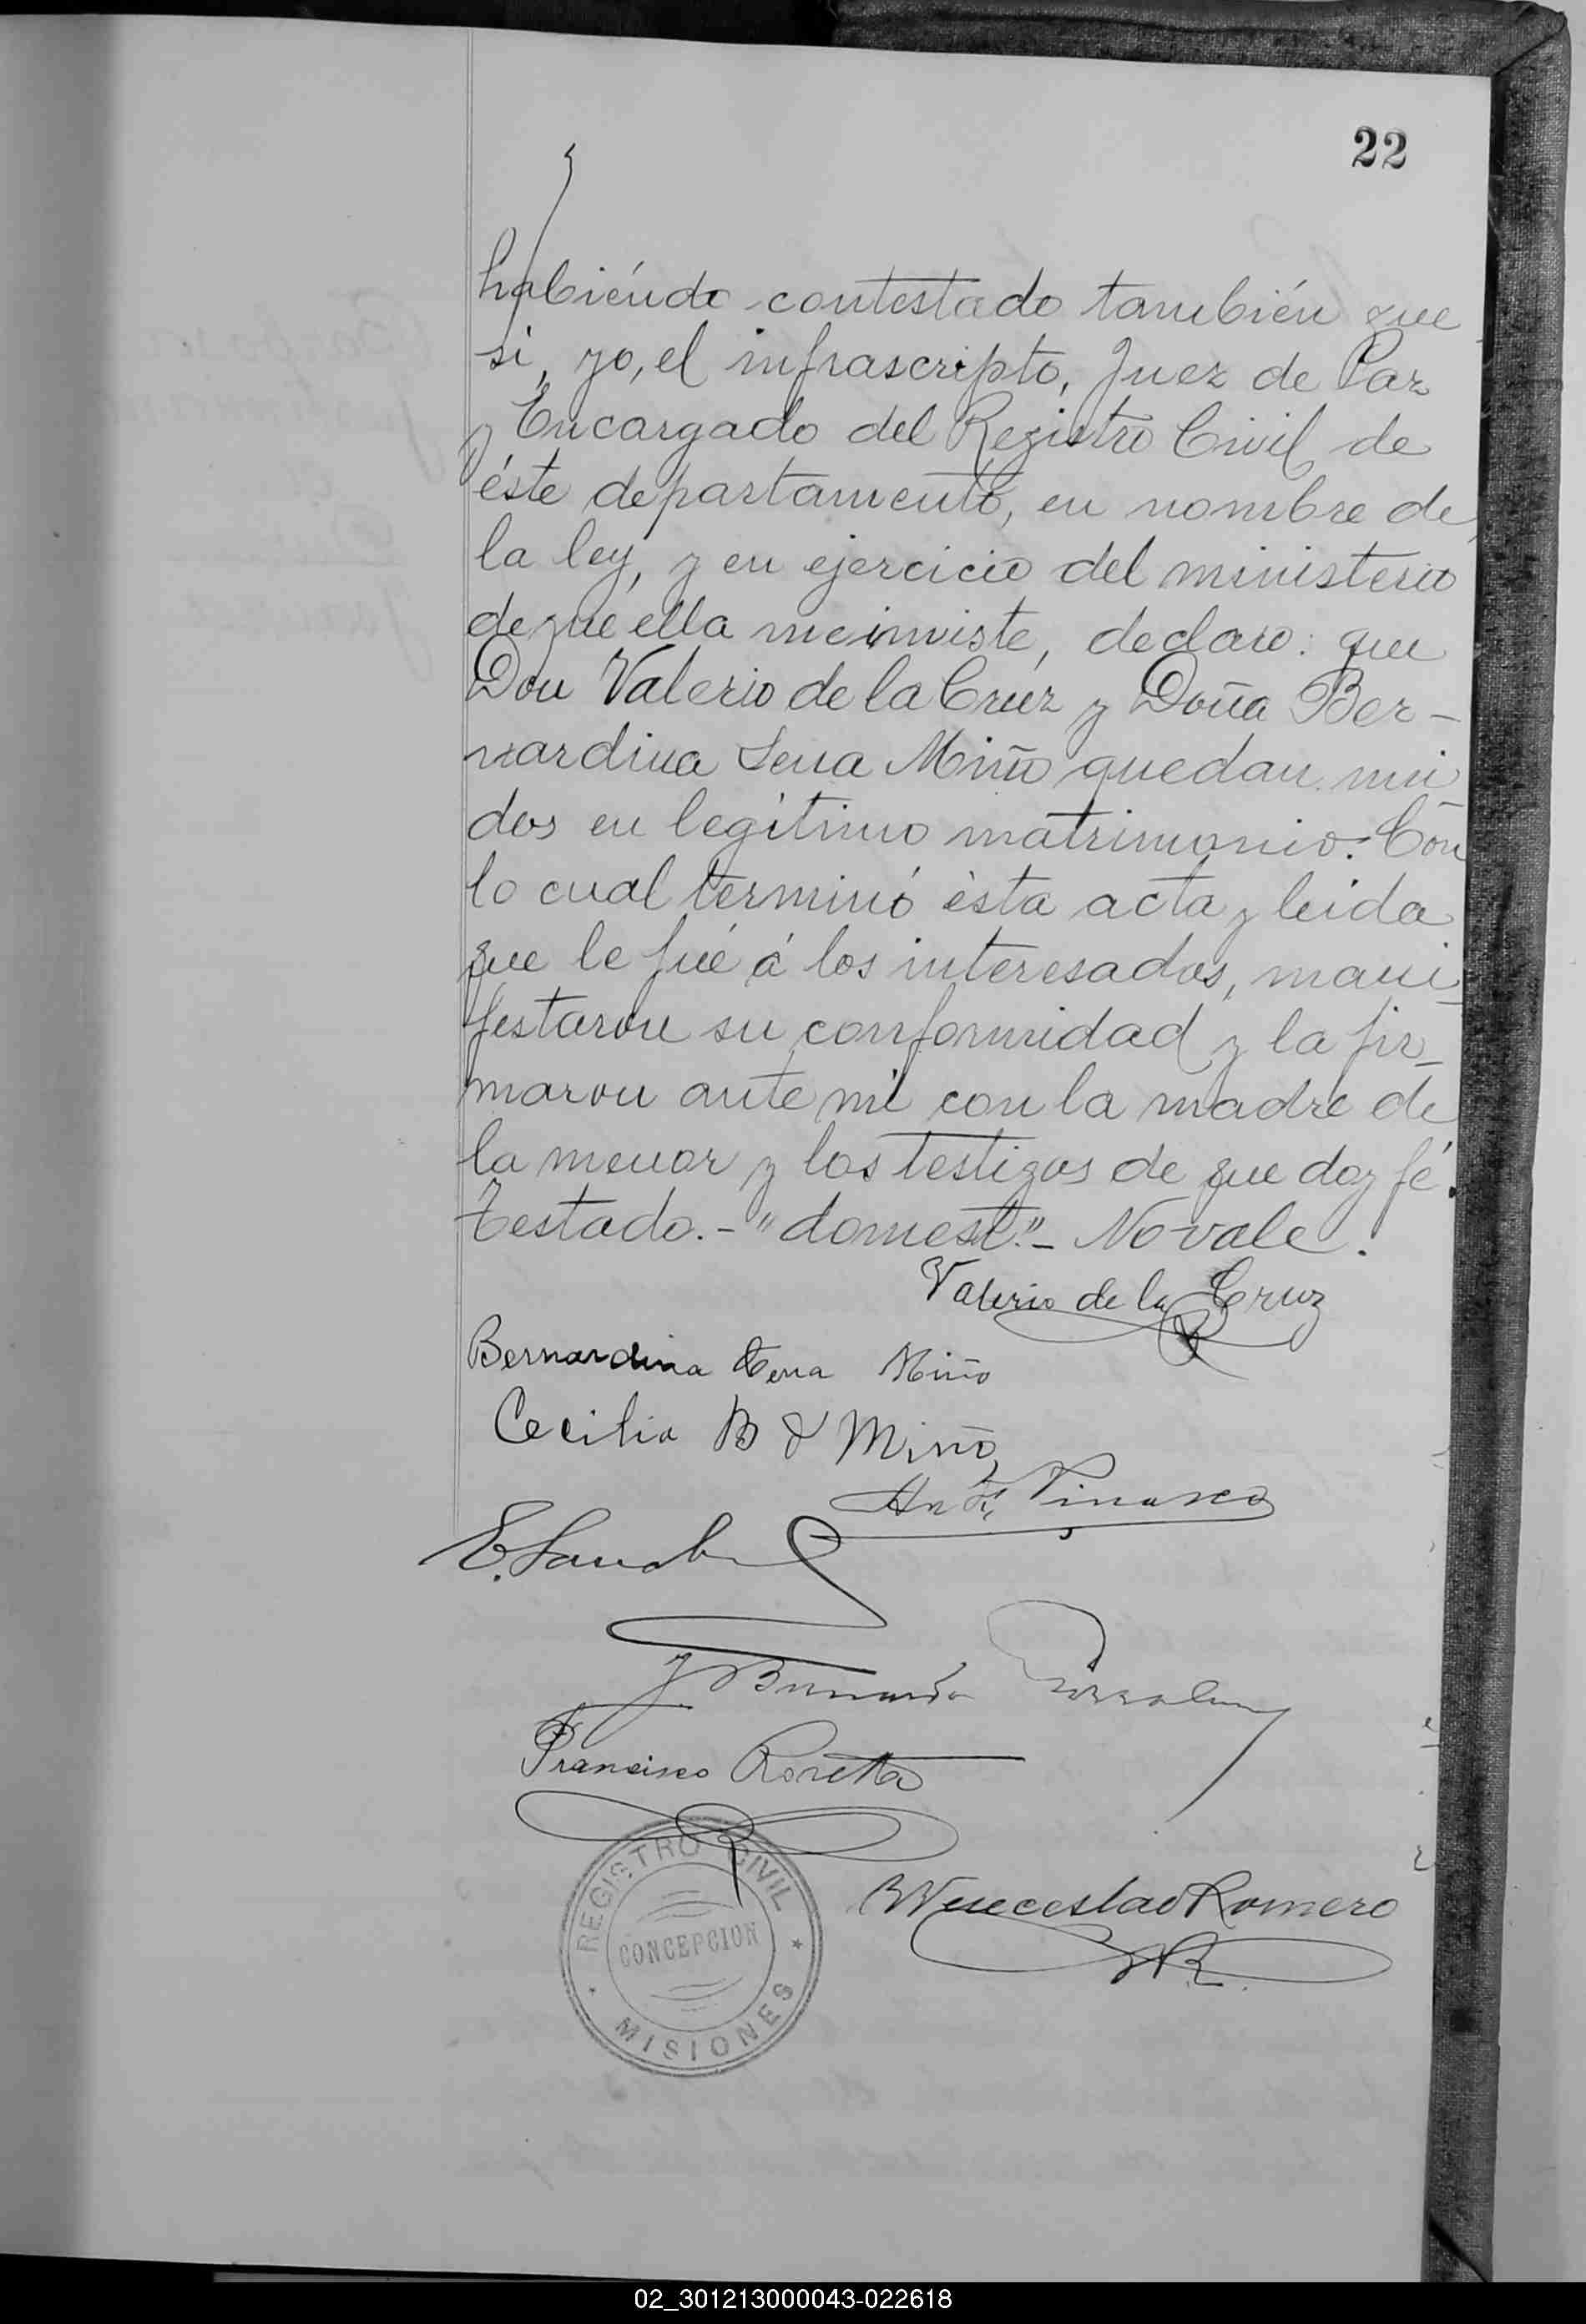 22
habiéndo contestado también que
si, yo, el infrascripto, Juez de Paz
y Encargado del Registro Civil de
éste departamento, en nombre de
la ley, y en ejercicio del ministerio
de que ella me inviste, declaro: que
Don Valerio de la Cruz y Doña Ber-
nardina Sena Miño quedan uni
dos en legítimo matrimonio. Con
lo cual terminó ésta acta y leida
que le fué á los interesados, mani-
festaron su conformidad y la fir-
maron ante mi con la madre de
la menor y los testigos de que doy fé.
Testado.-"domest."- No vale.
Valerio de la Cruz
Bernardina Sena Miño
Cecilia B d Miño
Pinasco
E.
J.
Francisco
Wenceslao Romero
REGISTRO CIVIL
CONCEPCION
MISIONES
02_301213000043-022618